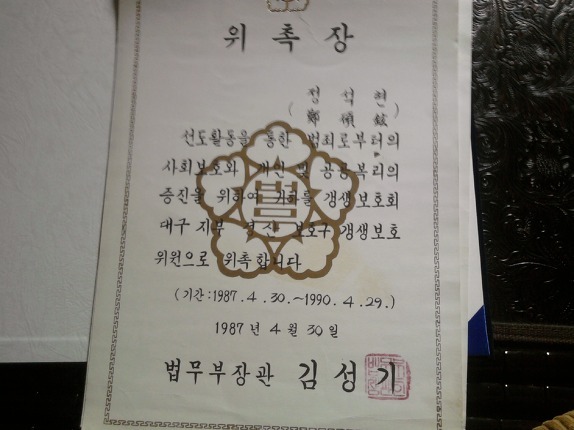 위 촉 장
정 석 현
(鄭 碩 鉉)
선도활동을 통한 범죄로부터의
사회보호와 개선 및 공공복리의
증진을 위하여 귀하를 갱생보호회
대구 지부 경산 보호구 갱생보호
위원으로 위촉합니다
(기간:1987. 4. 30.~1990. 4. 29.)
1987 년 4 월 30 일
법무부장관 김 성 기